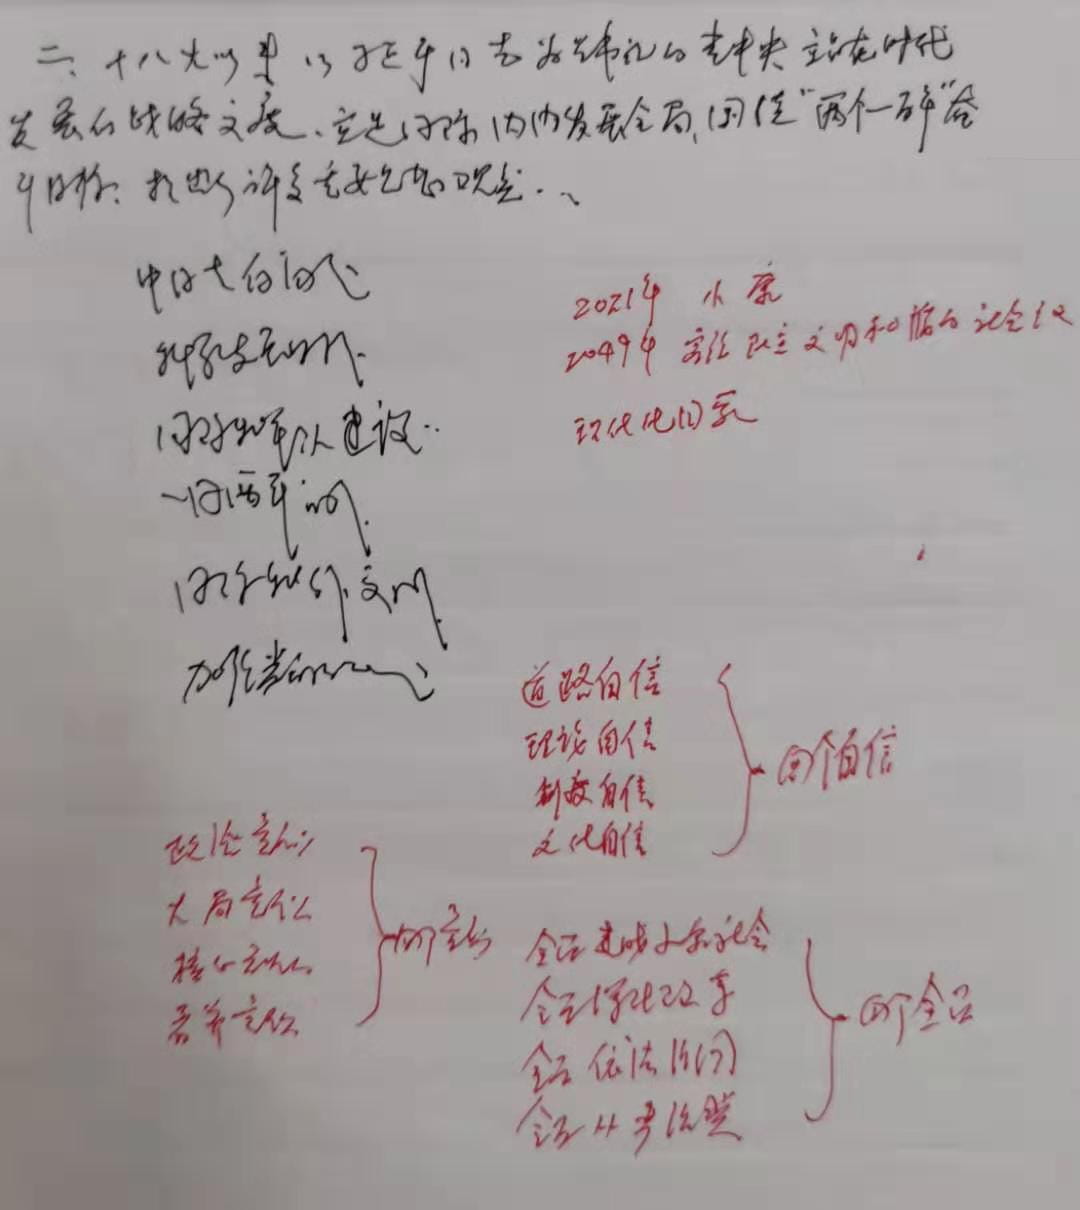 二、十八大以来以习近平同志为总书记的党中央站在时代
发展的战略高度、立足国际国内发展全局,围绕“两个一百年”奋
斗目标、提出了许多重要思想观点..、
中国共产党
科学发展
国防和军队建设..
一国两制
国际 外交
加强党
2021年 小康
2049年 富强民主文明和谐的社会主义
现代化国家
道路自信
理论自信
制度自信
文化自信
四个自信
政治意识
大局意识
核心意识
看齐意识
四个意识
全面建成小康社会
全面深化改革
全面依法治国
全面从严治党
四个全面